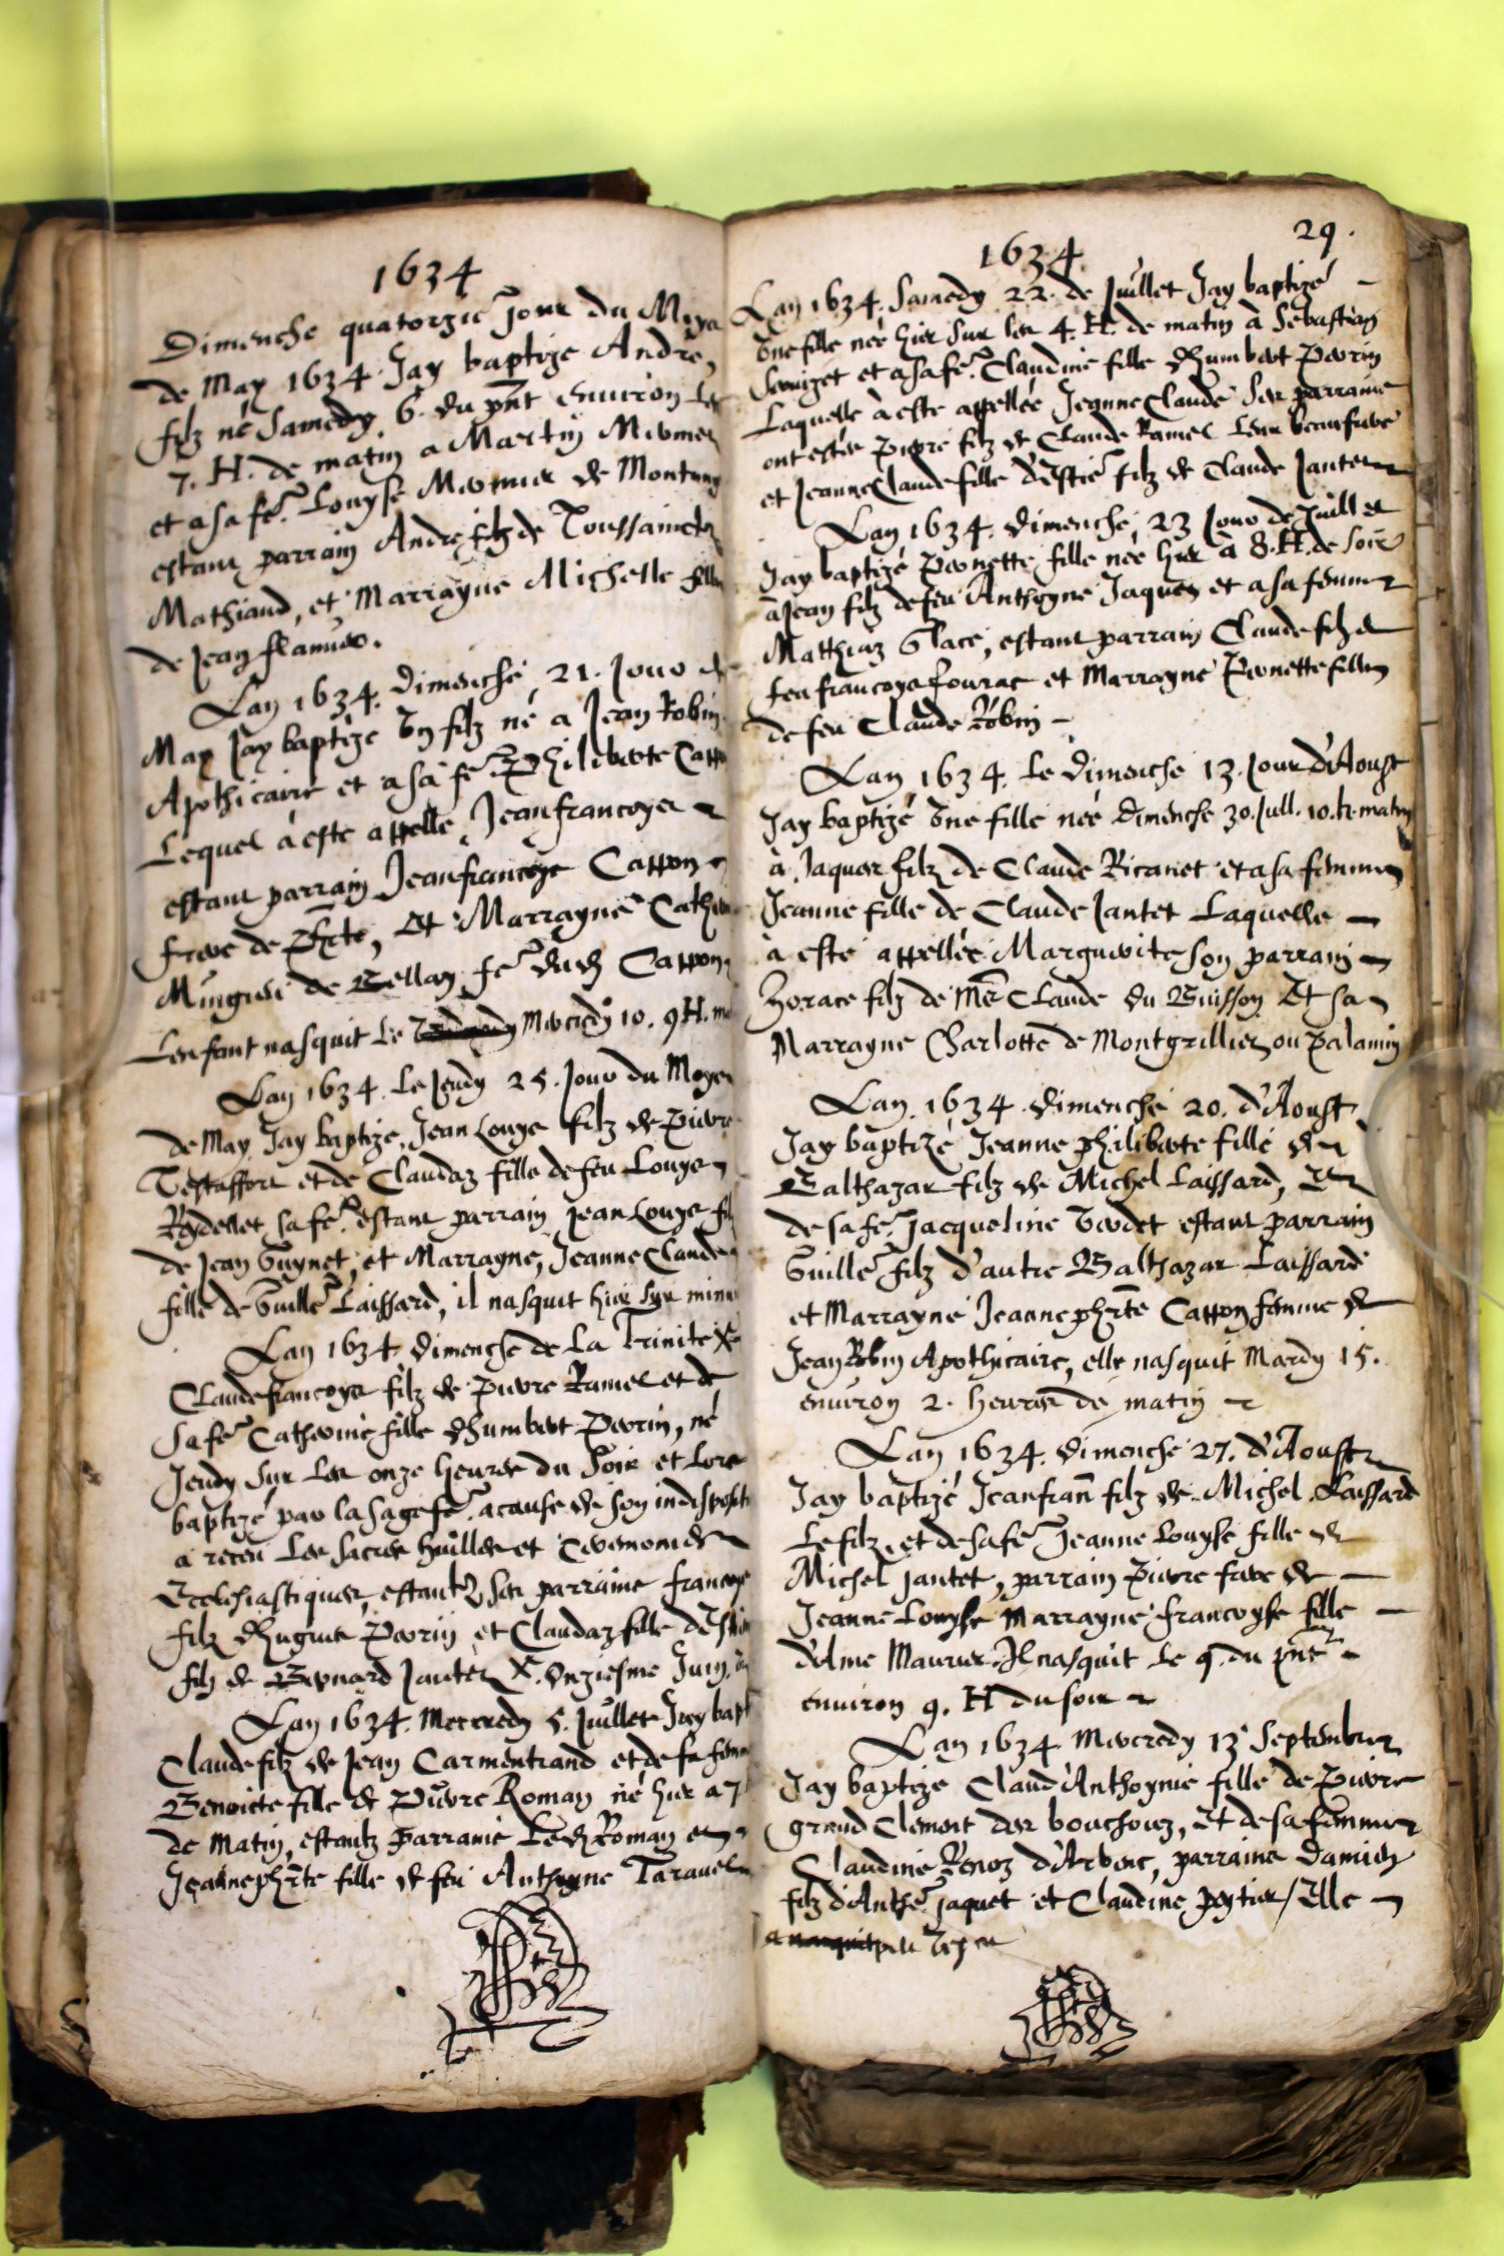 1634
Dimenche quatorzie Jour du Moys
de May 1634. Jay baptize André,
filz né Samedy 6. du pnt environ les
7. H. de matin a Martin Meunier
et a sa fe. Louyse Meunier de Montany
estant parrain André filz de Toussainctz
Mathiand, et Marrayne Michelle fille
de Jean flamier.
Lan 1634. dimenche 21. Jour de
May Jay baptizé Un filz né a Jean Robin
Apothicaire et a sa fe. Philiberte Catton
Lequel à esté appellé Jeanfrancoys
estant parrain Jeanfrancoys Catton
frere de Phte, et Marrayne Cather
de fe dud Catton
Lenfant nasquit le Mecredy 10. 9 H. ma
Lan 1634. Le Jeudy 25. Jour du Moys
de May Jay baptize, Jean Louys filz de Pierre
et de Claudaz fille de feu Louys
Reydellet sa fe. estant parrain Jean Louys filz
de Jean Guynet, et Marrayne, Jeanne Claude
fille de Guille Laissard, il nasquit hier sur minu
Lan 1634 dimenche de La Trinité
Claudefrancoys filz de Pierre Ramel et de
Safe Catherine fille dhumbert Perrin, né
Jeudy sur les onze heures du Soir et lors
baptizé par la sagefe. a cause de son indisposit
a receu Les sacres huilles et Ceremonies
Ecclesiastiques, estantz ses parrains francoys
filz dhugues Perrin et Claudaz fille
filz de Bernard Jantet. Unziesme Juin
Lan 1634. Mercredy 5. Juillet Jay bapt
Claude filz de Jean Carmentrand et de sa femme
Benoicte fille de Pierre Roman né hier a 7
de Matin, estantz Parrains Led Roman et
Jeannephte fille de feu Anthoyne Taravel
29.
1634
Lan 1634. Samedy 22. de Juillet Jay baptizé
Une fille née hier sur les 4. H. de matin à Sébastian
et a sa fe. Claudine fille dhumbert Perrin
Laquelle à esté appellée Jeanne Claude Ses parrains
ont estés Pierre filz de Claude Ramel Leur beaufrere
et Jeanne Claude fille filz de Claude Jantet
Lan 1634. Dimenche, 23 Jour de Juillet
Jay baptizé Pernette fille née hier à 8. H. de Soir
à Jean filz de feu Anthoyne Jaquet et a sa femme
Matthiaz Glace, estant parrain Claude filz de
feu francoys fourat et Marrayne Pernette fille
de feu Claude Robin
Lan 1634. Le Dimenche 13. Jour d'Aoust
Jay baptizé Une fille née Dimenche 30. Jull. 10. h. matin
à Jaques filz de Claude Ricanet et a sa femme
Jeanne fille de Claude Jantet Laquelle
à esté appellée Marguerite son parrain
Horace filz de Me Claude du Buisson Et sa
Marrayne Charlotte de Montgrillet ou Palamin
Lan. 1634. Dimenche 20. d'Aoust
Jay baptizé Jeanne philiberte fille de
Balthazar filz de Michel Laissard, Et
de sa fe. Jacqueline Verdet estant parrain
Guille filz d'autre Balthazar Laissard
et Marrayne Jeannephte Catton femme de
Jean Robin Apothicaire, elle nasquit Mardy 15.
environ 2. heures de matin
Lan 1634. Dimenche 27. d'Aoust
Jay baptizé Jeanfran filz de Michel Laissard
Le filz, et de safe Jeanne Louyse fille de
Michel Jantet, parrain Pierre frere de
Jeanne Louyse Marrayne francoyse fille
d'Ame Maurier. Il nasquit Le 9. du pnt
environ 9. H du soir
Lan 1634 Mercredy 13 Septembre
Jay baptize Claud'Anthoynie fille de Pierre
grand Clement des bouchouz, Et de sa femme
Claudine d'Arbenc, parrains Damien
filz d'Anthe Jaquet et Claudine Peytier / Elle